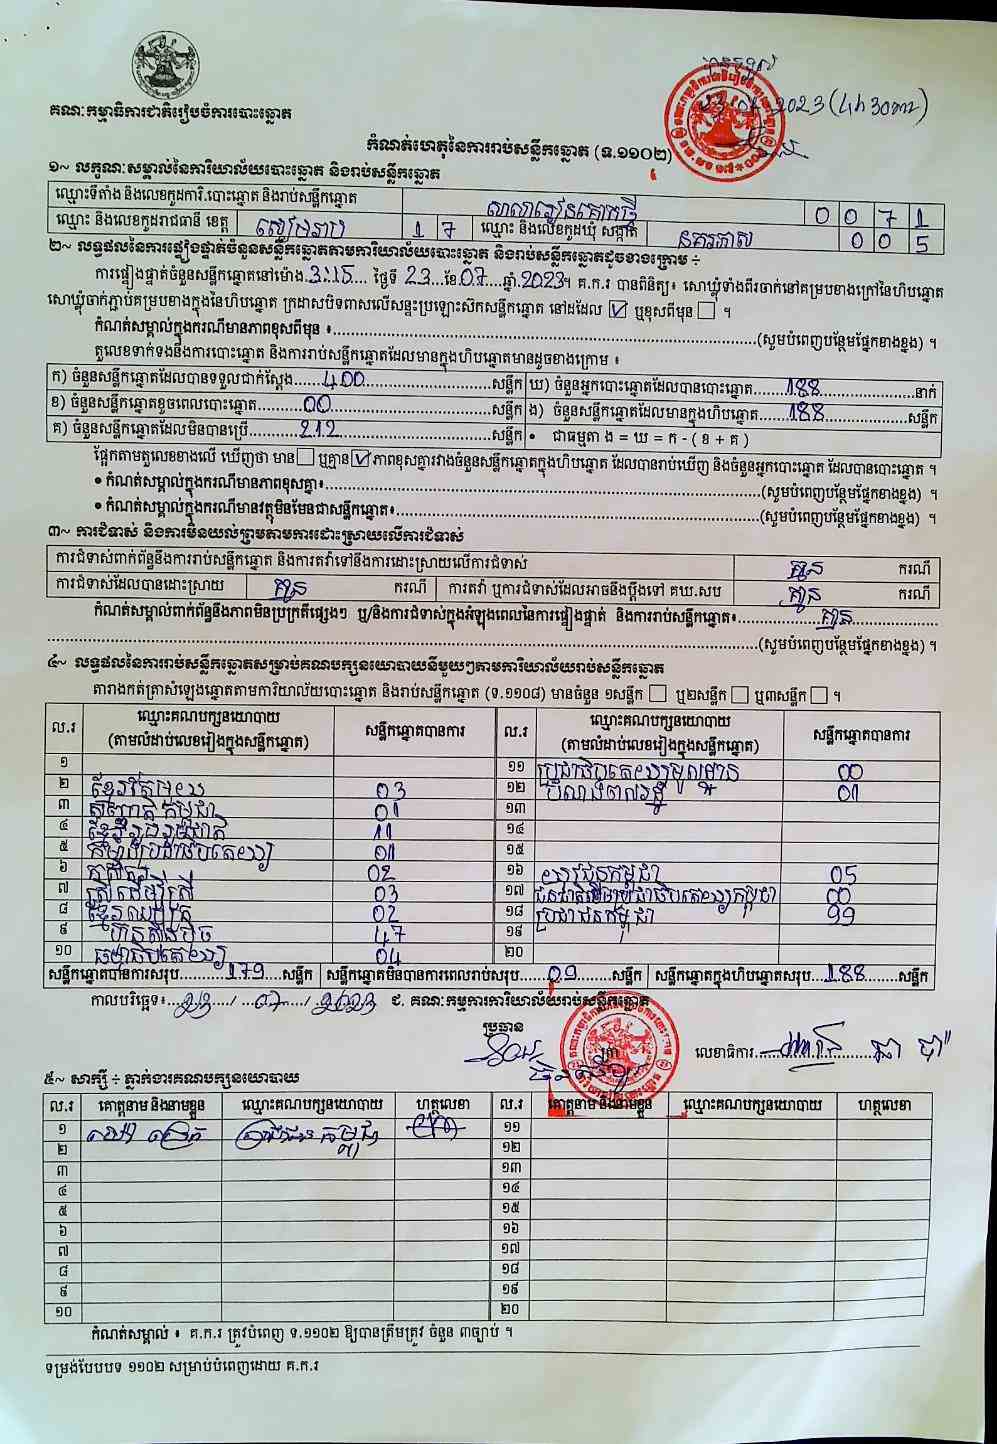 គណៈកម្មាធិការជាតិរៀបចំការបោះឆ្នោត
2023 (4h 30នាទី)
កំណត់ហេតុនៃការរាប់សន្លឹកឆ្នោត (ទ.១១០២)
១~ លក្ខណៈសម្គាល់នៃការិយាល័យបោះឆ្នោត និងរាប់សន្លឹកឆ្នោត
ឈ្មោះទីតាំង និងលេខកូដការិ.បោះឆ្នោត និងរាប់សន្លឹកឆ្នោត 0 0 7 1
ឈ្មោះ និងលេខកូដរាជធានី ខេត្ត សៀមរាប 1 7 ឈ្មោះ និងលេខកូដឃុំ សង្កាត់ នគរធំ 0 0 5
២~ លទ្ធផលនៃការផ្ទៀងផ្ទាត់ចំនួនសន្លឹកឆ្នោតតាមការិយាល័យបោះឆ្នោត និងរាប់សន្លឹកឆ្នោតដូចខាងក្រោម ÷
ការផ្ទៀងផ្ទាត់ចំនួនសន្លឹកឆ្នោតនៅម៉ោង 3:15 ថ្ងៃទី 23 ខែ 07 ឆ្នាំ 2023។ គ.ក.រ បានពិនិត្យ៖ សោឃ្លុំទាំងពីរចាក់នៅគម្របខាងក្រៅនៃហិបឆ្នោត
សោឃ្លុំចាក់ភ្ជាប់គម្របខាងក្នុងនៃហិបឆ្នោត ក្រដាសបិទពាសលើសន្ទះប្រឡោះសិកសន្លឹកឆ្នោត នៅដដែល ☑ ឬខុសពីមុន ☐ ។
កំណត់សម្គាល់ក្នុងករណីមានភាពខុសពីមុន ៖ (សូមបំពេញបន្ថែមផ្នែកខាងខ្នង) ។
តួលេខទាក់ទងនឹងការបោះឆ្នោត និងការរាប់សន្លឹកឆ្នោតដែលមានក្នុងហិបឆ្នោតមានដូចខាងក្រោម ៖
ក) ចំនួនសន្លឹកឆ្នោតដែលបានទទួលជាក់ស្តែង 400 សន្លឹក ឃ) ចំនួនអ្នកបោះឆ្នោតដែលបានបោះឆ្នោត 188 នាក់
ខ) ចំនួនសន្លឹកឆ្នោតខូចពេលបោះឆ្នោត 00 សន្លឹក ង) ចំនួនសន្លឹកឆ្នោតដែលមានក្នុងហិបឆ្នោត 188 សន្លឹក
គ) ចំនួនសន្លឹកឆ្នោតដែលមិនបានប្រើ 212 សន្លឹក • ជាធម្មតា ង = ឃ = ក - ( ខ + គ )
ផ្អែកតាមតួលេខខាងលើ ឃើញថា មាន ☐ ឬគ្មាន ☑ ភាពខុសគ្នារវាងចំនួនសន្លឹកឆ្នោតក្នុងហិបឆ្នោត ដែលបានរាប់ឃើញ និងចំនួនអ្នកបោះឆ្នោត ដែលបានបោះឆ្នោត ។
• កំណត់សម្គាល់ក្នុងករណីមានភាពខុសគ្នា៖ (សូមបំពេញបន្ថែមផ្នែកខាងខ្នង) ។
• កំណត់សម្គាល់ក្នុងករណីមានវត្ថុមិនមែនជាសន្លឹកឆ្នោត៖ (សូមបំពេញបន្ថែមផ្នែកខាងខ្នង) ។
៣~ ការជំទាស់ និងការមិនយល់ព្រមតាមការដោះស្រាយលើការជំទាស់
ការជំទាស់ពាក់ព័ន្ធនឹងការរាប់សន្លឹកឆ្នោត និងការតវ៉ាទៅនឹងការដោះស្រាយលើការជំទាស់ គ្មាន ករណី
ការជំទាស់ដែលបានដោះស្រាយ គ្មាន ករណី ការតវ៉ា ឬការជំទាស់ដែលអាចនឹងប្តឹងទៅ គឃ.សប គ្មាន ករណី
កំណត់សម្គាល់ពាក់ព័ន្ធនឹងភាពមិនប្រក្រតីផ្សេងៗ ឬ/និងការជំទាស់ក្នុងអំឡុងពេលនៃការផ្ទៀងផ្ទាត់ និងការរាប់សន្លឹកឆ្នោត៖ គ្មាន
(សូមបំពេញបន្ថែមផ្នែកខាងខ្នង) ។
៤~ លទ្ធផលនៃការរាប់សន្លឹកឆ្នោតសម្រាប់គណបក្សនយោបាយនីមួយៗតាមការិយាល័យរាប់សន្លឹកឆ្នោត
តារាងកត់ត្រាសំឡេងឆ្នោតតាមការិយាល័យបោះឆ្នោត និងរាប់សន្លឹកឆ្នោត (ទ.១១០៨) មានចំនួន ១សន្លឹក ☐ ឬ២សន្លឹក ☐ ឬ៣សន្លឹក ☐ ។
ល.រ ឈ្មោះគណបក្សនយោបាយ (តាមលំដាប់លេខរៀងក្នុងសន្លឹកឆ្នោត) សន្លឹកឆ្នោតបានការ ល.រ ឈ្មោះគណបក្សនយោបាយ (តាមលំដាប់លេខរៀងក្នុងសន្លឹកឆ្នោត) សន្លឹកឆ្នោតបានការ
១ ១១ ប្រជាធិបតេយ្យមូលដ្ឋាន 00
២ 03 ១២ 01
៣ សញ្ជាតិកម្ពុជា 01 ១៣
៤ ខ្មែររួបរួមជាតិ 11 ១៤
៥ កម្លាំងប្រជាធិបតេយ្យ 01 ១៥
៦ កសិករ 02 ១៦ យុវជនកម្ពុជា 05
៧ ស្ត្រីដើម្បីស្ត្រី 03 ១៧ ជនជាតិដើមប្រជាធិបតេយ្យកម្ពុជា 00
៨ 02 ១៨ ប្រជាជនកម្ពុជា 99
៩ ហ៊្វុនស៊ិនប៉ិច 47 ១៩
១០ ធម្មាធិបតេយ្យ 04 ២០
សន្លឹកឆ្នោតបានការសរុប 179 សន្លឹក សន្លឹកឆ្នោតមិនបានការពេលរាប់សរុប 09 សន្លឹក សន្លឹកឆ្នោតក្នុងហិបឆ្នោតសរុប 188 សន្លឹក
កាលបរិច្ឆេទ៖ ២៣ / ០៧ / ២០២៣ ជ. គណៈកម្មការការិយាល័យរាប់សន្លឹកឆ្នោត
ប្រធាន
លេខាធិការ
៥~ សាក្សី ÷ ភ្នាក់ងារគណបក្សនយោបាយ
ល.រ គោត្តនាម និងនាមខ្លួន ឈ្មោះគណបក្សនយោបាយ ហត្ថលេខា ល.រ គោត្តនាម និងនាមខ្លួន ឈ្មោះគណបក្សនយោបាយ ហត្ថលេខា
១ ប្រជាជនកម្ពុជា ១១
២ ១២
៣ ១៣
៤ ១៤
៥ ១៥
៦ ១៦
៧ ១៧
៨ ១៨
៩ ១៩
១០ ២០
កំណត់សម្គាល់ ៖ គ.ក.រ ត្រូវបំពេញ ទ.១១០២ ឱ្យបានត្រឹមត្រូវ ចំនួន ៣ច្បាប់ ។
ទម្រង់បែបបទ ១១០២ សម្រាប់បំពេញដោយ គ.ក.រ